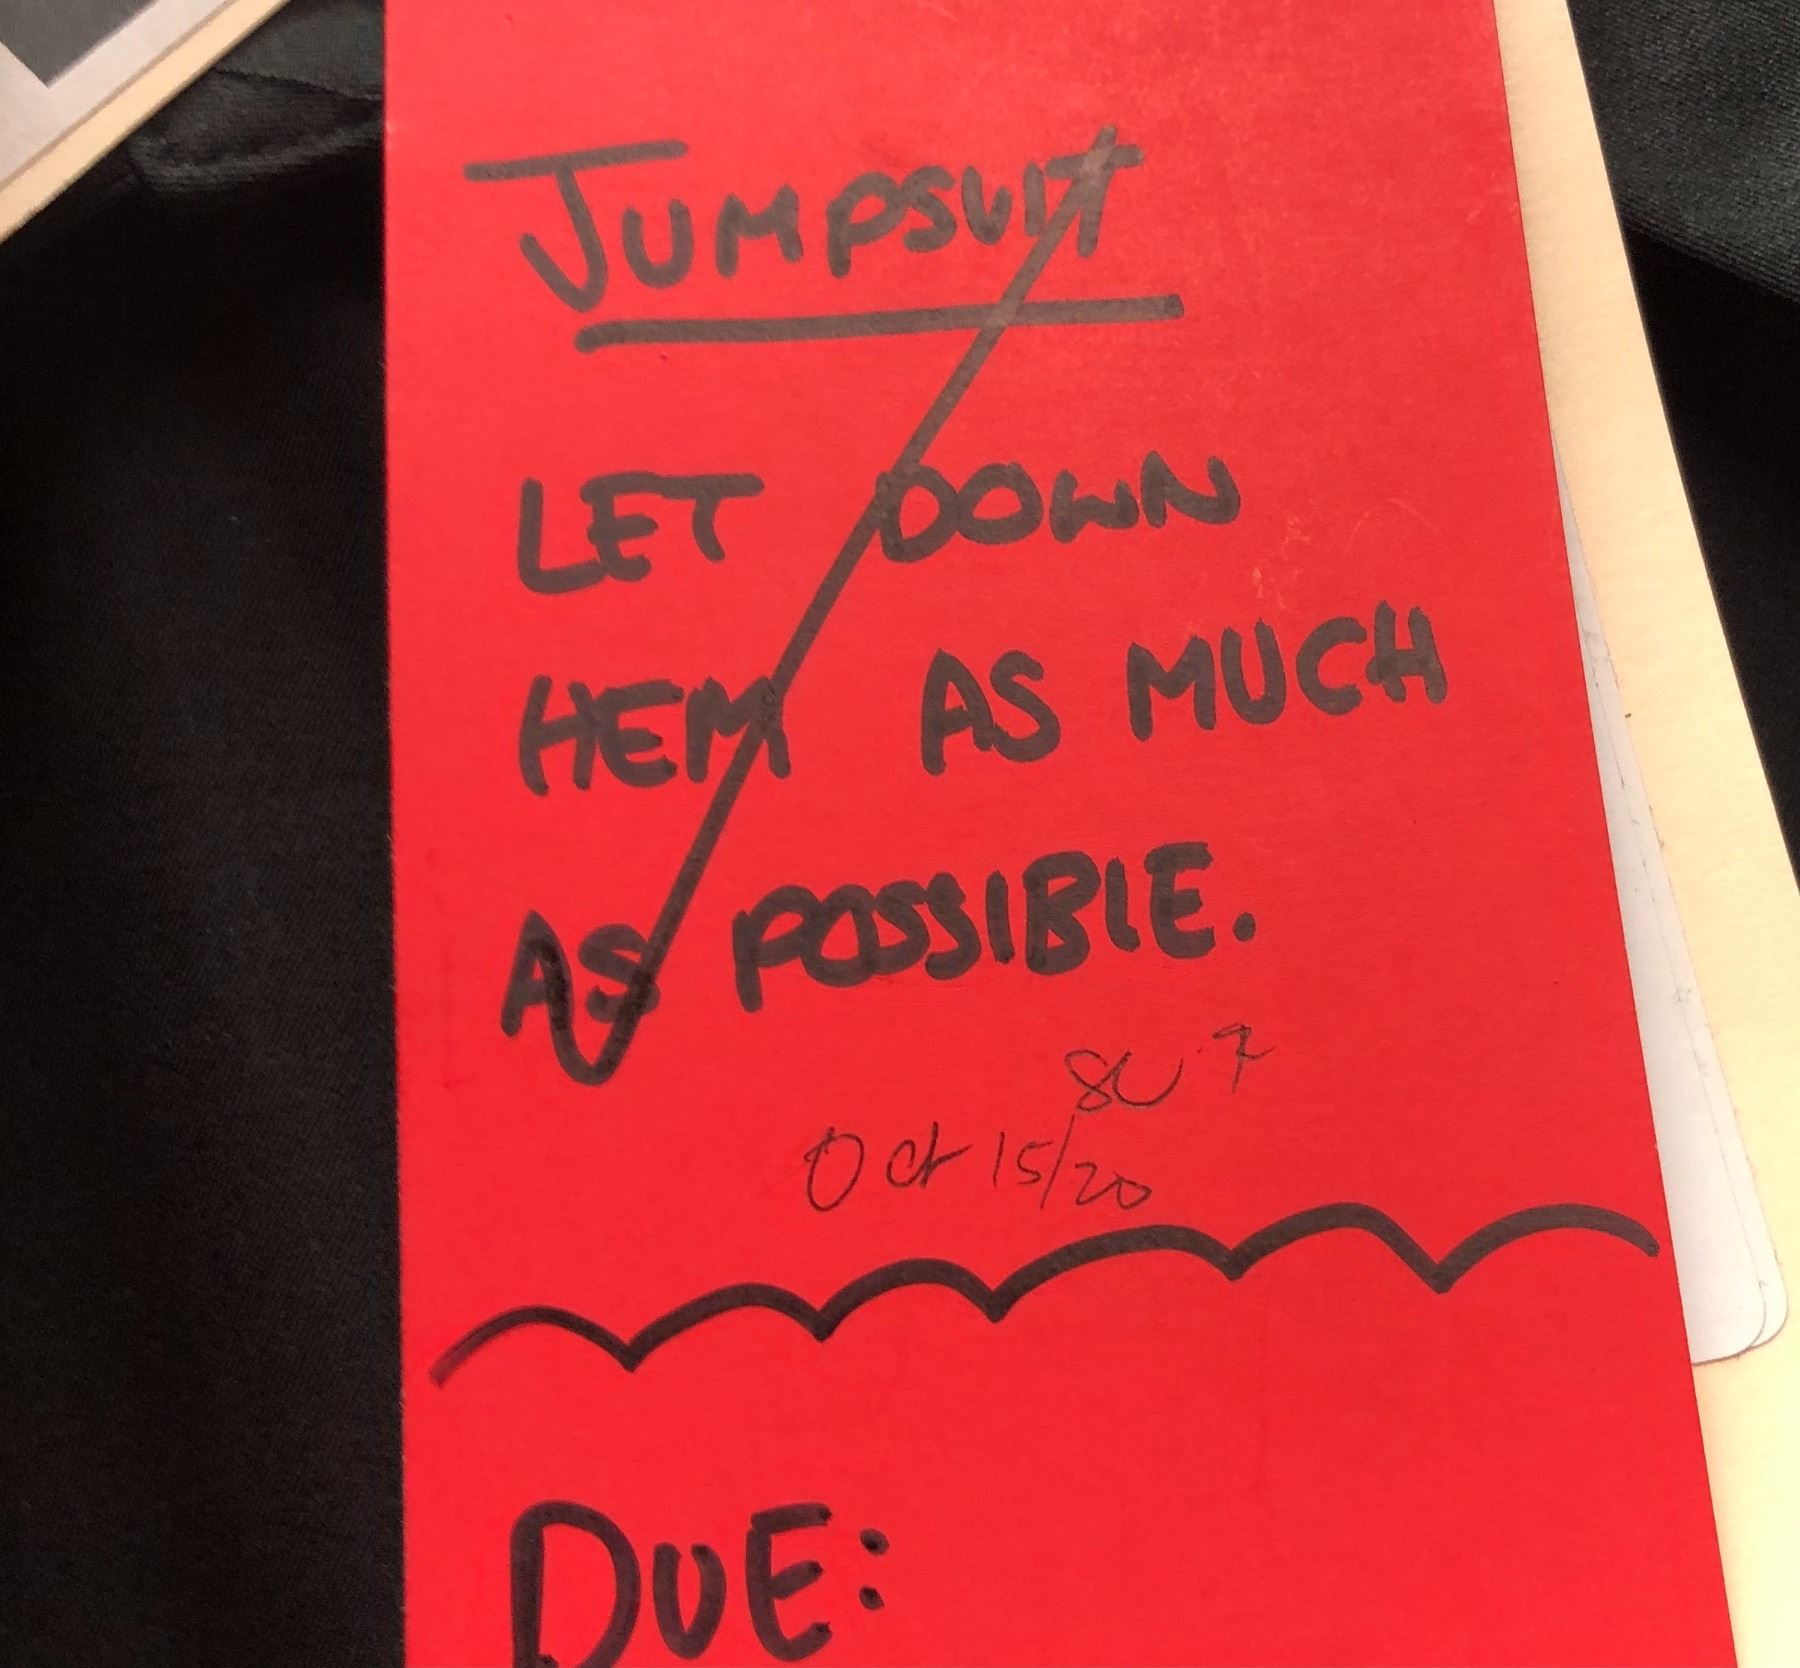 JUMPSUIT
LET DOWN
HEM AS MUCH
AS POSSIBLE.
Oct 15/20
DUE: